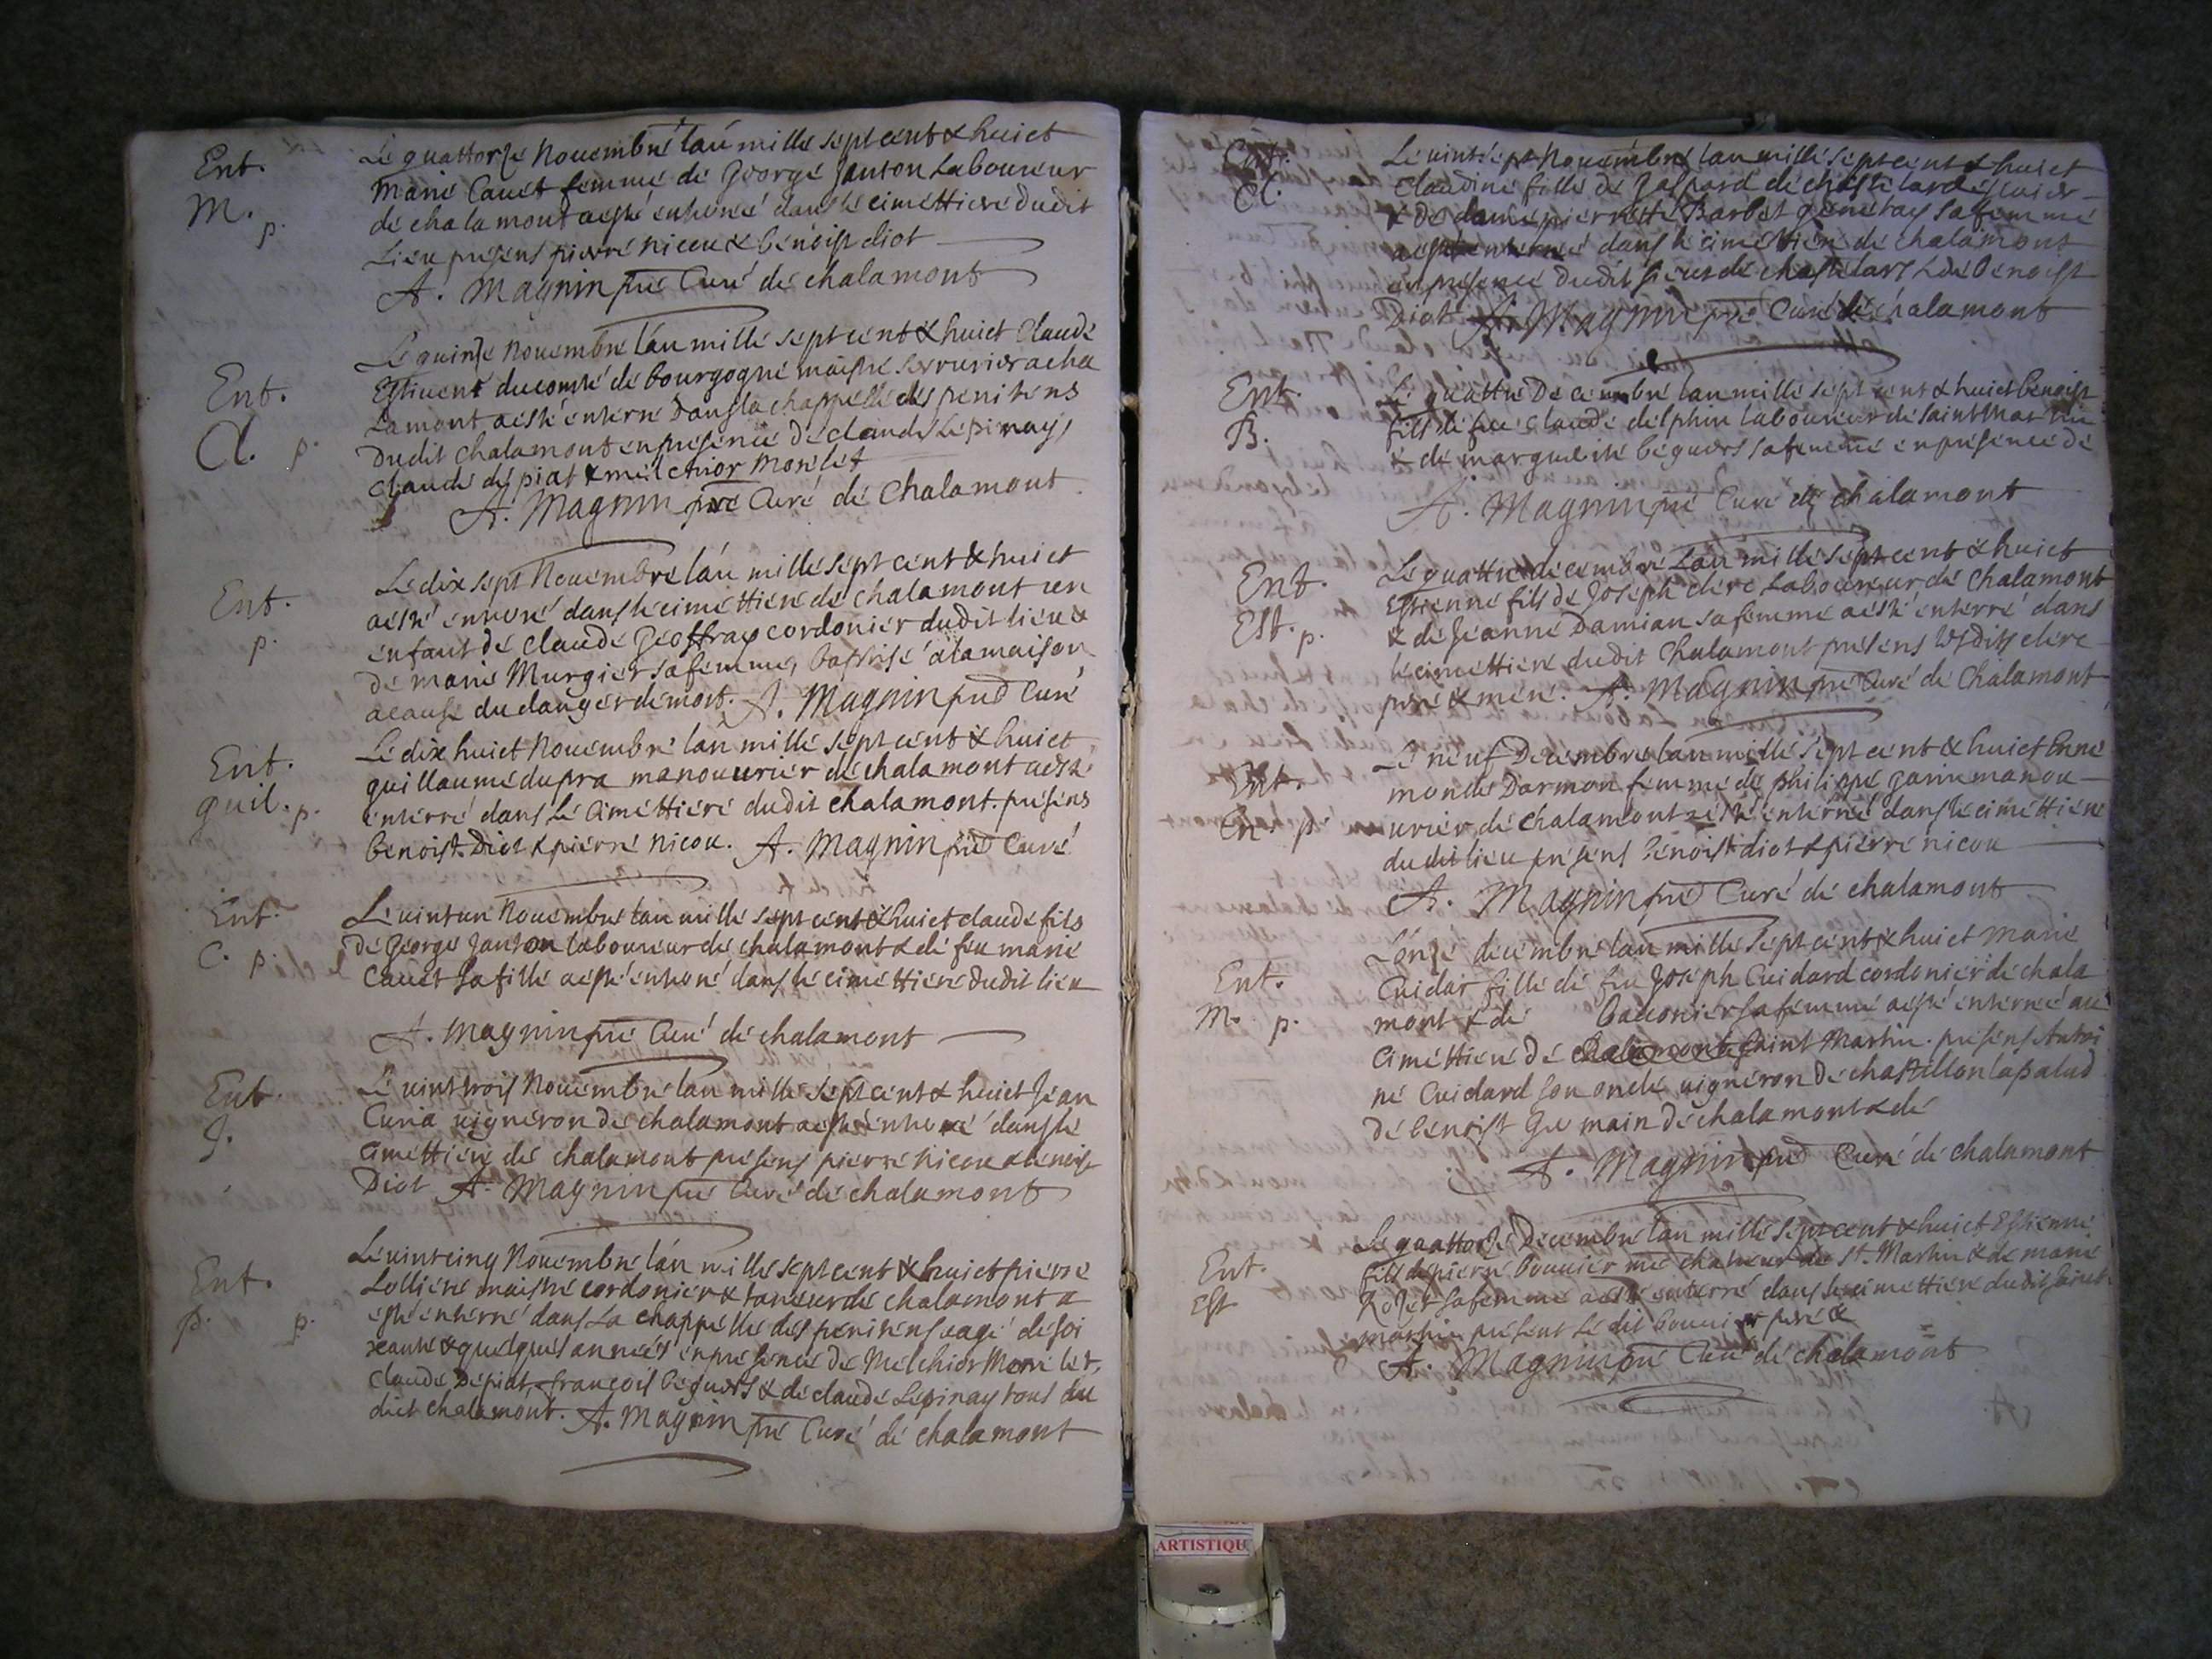 Ent.
M.
p.
Le quattorze Nouembre lan mille sept cent & huict
Marie Cauet femme de George Janton Laboureur
de chalamont aesté enterreé dans le cimettiere dudit
Lieu presens pierre nicou & benoist diot
A. Magnin pre Curé de chalamont
Ent.
Cl. p.
Le quinze Nouembre lan mille sept cent & huict Claude
Estiuent du comté de bourgogne maistre serrurier a cha
Lamont aesté enterré dans la chappelle des penitens
dudit chalamont en presence de claude Lépinay,
claude depiat & melchior Morelet
A. Magnin pre Curé de Chalamont
Ent.
p.
Le dix sept Nouembre lan mille sept cent & huict
aesté enterré dans le cimettiere de chalamont un
enfant de claude Geoffray cordonier dudit lieu &
de marie Murgier sa femme, baptisé a la maison
a cause du danger de mort. A. Magnin pre Curé
Ent.
guil. p.
Le dix huict Nouembre lan mille sept cent & huict
guillaume dupra manouurier de chalamont aesté
enterré dans le Cimettiere dudit chalamont. presens
benoist Diot & pierre nicou. A. Magnin pre Curé
Ent.
C. p.
Le uint un Nouembre lan mille sept cent & huict claude fils
de George Janton laboureur de chalamont & de feu marie
Cauet sa fille aesté enterré dans le cimettiere dudit lieu
A. Magnin pre Curé de chalamont
Ent.
J.
Le uint trois Nouembre lan mille sept cent & huict Jean
Curia uigneron de chalamont aesté enterré dans le
Cimettiere de chalamont presens pierre nicou & benoist
Diot A. Magnin pre Curé de chalamont
Ent.
p. p.
Le uint cinq Nouembre lan mille sept cent & huict pierre
Lolliere maistre cordonier & taneur de chalamont a
esté enterré dans la chappelle des penitens agé de soi
xante & quelques années en presence de Melchior Morelet,
claude Depiat, françois béguers & de claude Lépinay tous du
dict chalamont. A. Magnin pre Curé de chalamont
Ent.
Cl.
Le uint sept Nouembre lan mille sept cent & huict
Claudine fille de Gaspard de chastelard escuier
& de dame pierrette Barbet sa femme
aesté enterreé dans le cimettiere de chalamont
en presence dudit sieur de chastelard & de benoist
Diot A. Magnin pre Curé de chalamont
Ent.
B.
Le quattre Decembre lan mille sept cent & huict benoist
fils de feu claude delphin laboureur de saint Martin
& de marguerite béguers sa femme en presence de
A. Magnin pre Curé de chalamont
Ent.
Est. p.
Le quattre decembre Lan mille sept cent & huict
Estienne fils de Joseph clere Laboureur de chalamont
& de Jeanne Damian sa femme aesté enterré dans
le cimettiere dudit Chalamont presens lesdits clere
pere & mere. A. Magnin pre Curé de Chalamont
Ent.
En. p.
Le neuf Decembre lan mille sept cent & huict Enne
monde Darmon femme de philippe Janin manou
urier de chalamont aesté enterreé dans le cimettiere
dudit lieu presens benoist diot & pierre nicou
A. Magnin pre Curé de chalamont
Ent.
M. p.
Lonze decembre lan mille sept cent & huict Marie
Cuidar fille de feu Joseph Cuidard cordonier de chala
mont & de Baconier sa femme aesté enterreé au
Cimettiere de saint Martin. presens Antoi
ne Cuidard son oncle uigneron de chastillon la palud
de benoist Germain de chalamont & de
A. Magnin pre Curé de chalamont
Ent.
Est
Le quattorze Decembre lan mille sept cent & huict Estienne
fils de pierre bouuier de St. Martin & de marie
Rozet sa femme aesté enterré dans le cimettiere dudit saint
martin present le dit bouuier pere &
A. Magnin pre Curé de chalamont
ARTISTIQU